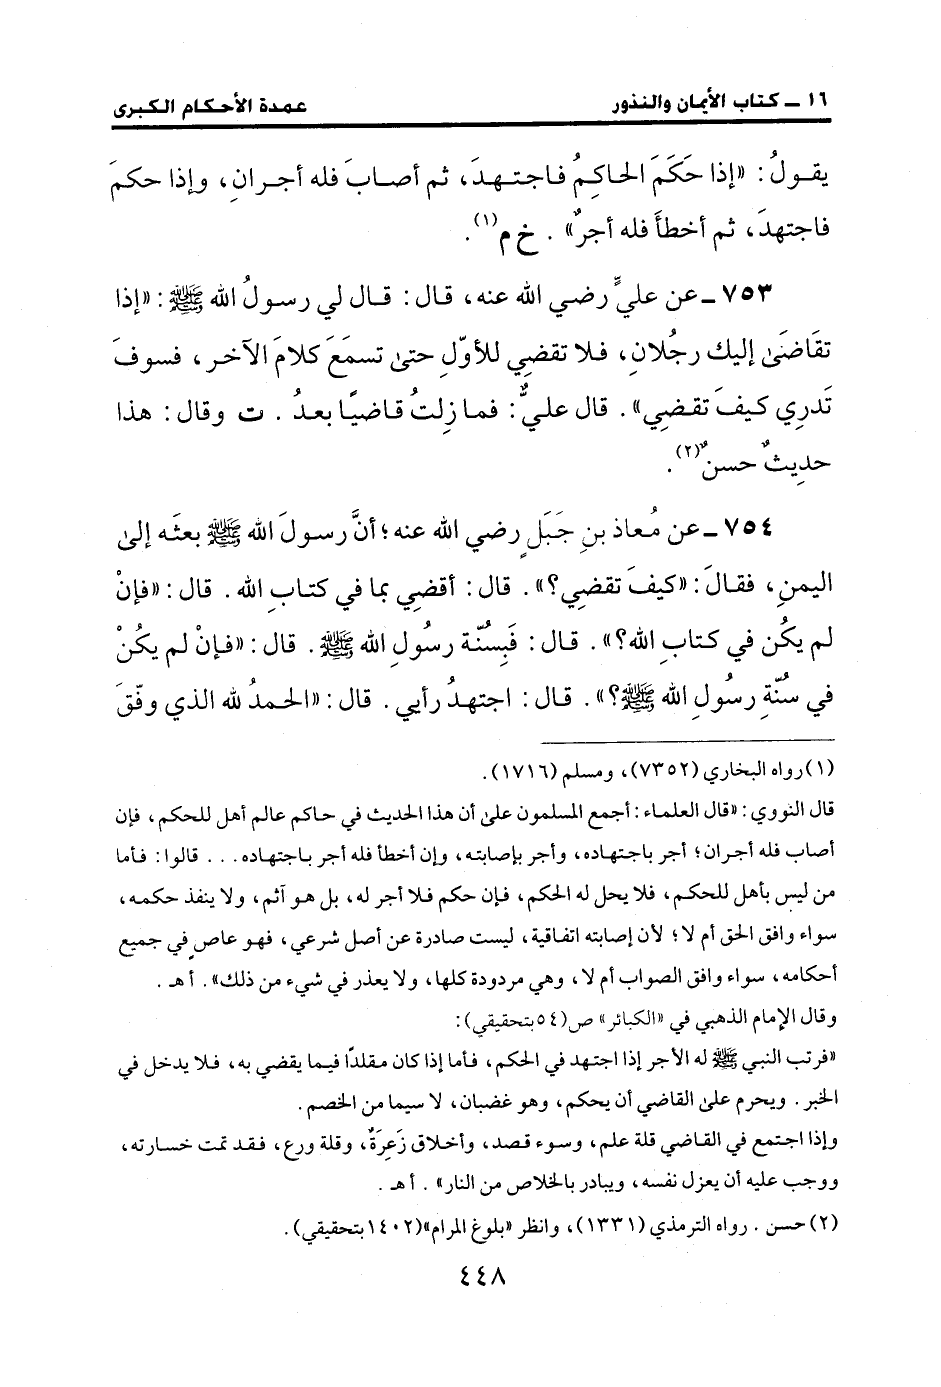 ١٦ ـ كتاب الأيمان والنذور عمدة الأحكام الكبرى
يقولُ: «إذا حَكَمَ الحاكِمُ فاجتهدَ، ثم أصابَ فله أجرانِ، وإذا حكمَ
فاجتهدَ، ثم أخطأَ فله أجرٌ». خ م(١).
٧٥٣ ـ عن عليٍّ رضي الله عنه، قال: قال لي رسولُ الله ﷺ: «إذا
تقَاضَىٰ إليك رجُلانِ، فلا تقضِي للأوّلِ حتىٰ تسمَعَ كلامَ الآخر، فسوفَ
تَدرِي كيفَ تقضِي». قال عليٌّ: فما زِلتُ قاضيًا بعدُ. ت وقال: هذا
حديثٌ حسنٌ(٢).
٧٥٤ ـ عن مُعاذ بنِ جَبَلٍ رضي الله عنه؛ أنَّ رسولَ الله ﷺ بعثَه إلىٰ
اليمنِ، فقالَ: «كيفَ تقضِي؟». قال: أقضِي بما في كتابِ الله. قال: «فإنْ
لم يكُن في كتابِ الله؟». قال: فَبِسُنّة رسُولِ الله ﷺ. قال: «فإنْ لم يكُنْ
في سُنّةِ رسُولِ الله ﷺ؟». قال: اجتهدُ رأيي. قال: «الحمدُ لله الذي وفّقَ
(١) رواه البخاري (٧٣٥٢)، ومسلم (١٧١٦).
قال النووي: «قال العلماء: أجمع المسلمون علىٰ أن هذا الحديث في حاكم عالم أهل للحكم، فإن
أصاب فله أجران؛ أجر باجتهاده، وأجر بإصابته، وإن أخطأ فله أجر باجتهاده... قالوا: فأما
من ليس بأهل للحكم، فلا يحل له الحكم، فإن حكم فلا أجر له، بل هو آثم، ولا ينفذ حكمه،
سواء وافق الحق أم لا؛ لأن إصابته اتفاقية، ليست صادرة عن أصل شرعي، فهو عاصٍ في جميع
أحكامه، سواء وافق الصواب أم لا، وهي مردودة كلها، ولا يعذر في شيء من ذلك». أ هـ.
وقال الإمام الذهبي في «الكبائر» ص (٥٤ بتحقيقي):
«فرتب النبي ﷺ له الأجر إذا اجتهد في الحكم، فأما إذا كان مقلدًا فيما يقضي به، فلا يدخل في
الخبر. ويحرم علىٰ القاضي أن يحكم، وهو غضبان، لا سيما من الخصم.
وإذا اجتمع في القاضي قلة علم، وسوء قصد، وأخلاق زَعِرَةٌ، وقلة ورع، فقد تمت خسارته،
ووجب عليه أن يعزل نفسه، ويبادر بالخلاص من النار». أ هـ.
(٢) حسن. رواه الترمذي (١٣٣١)، وانظر «بلوغ المرام» (١٤٠٢ بتحقيقي).
٤٤٨